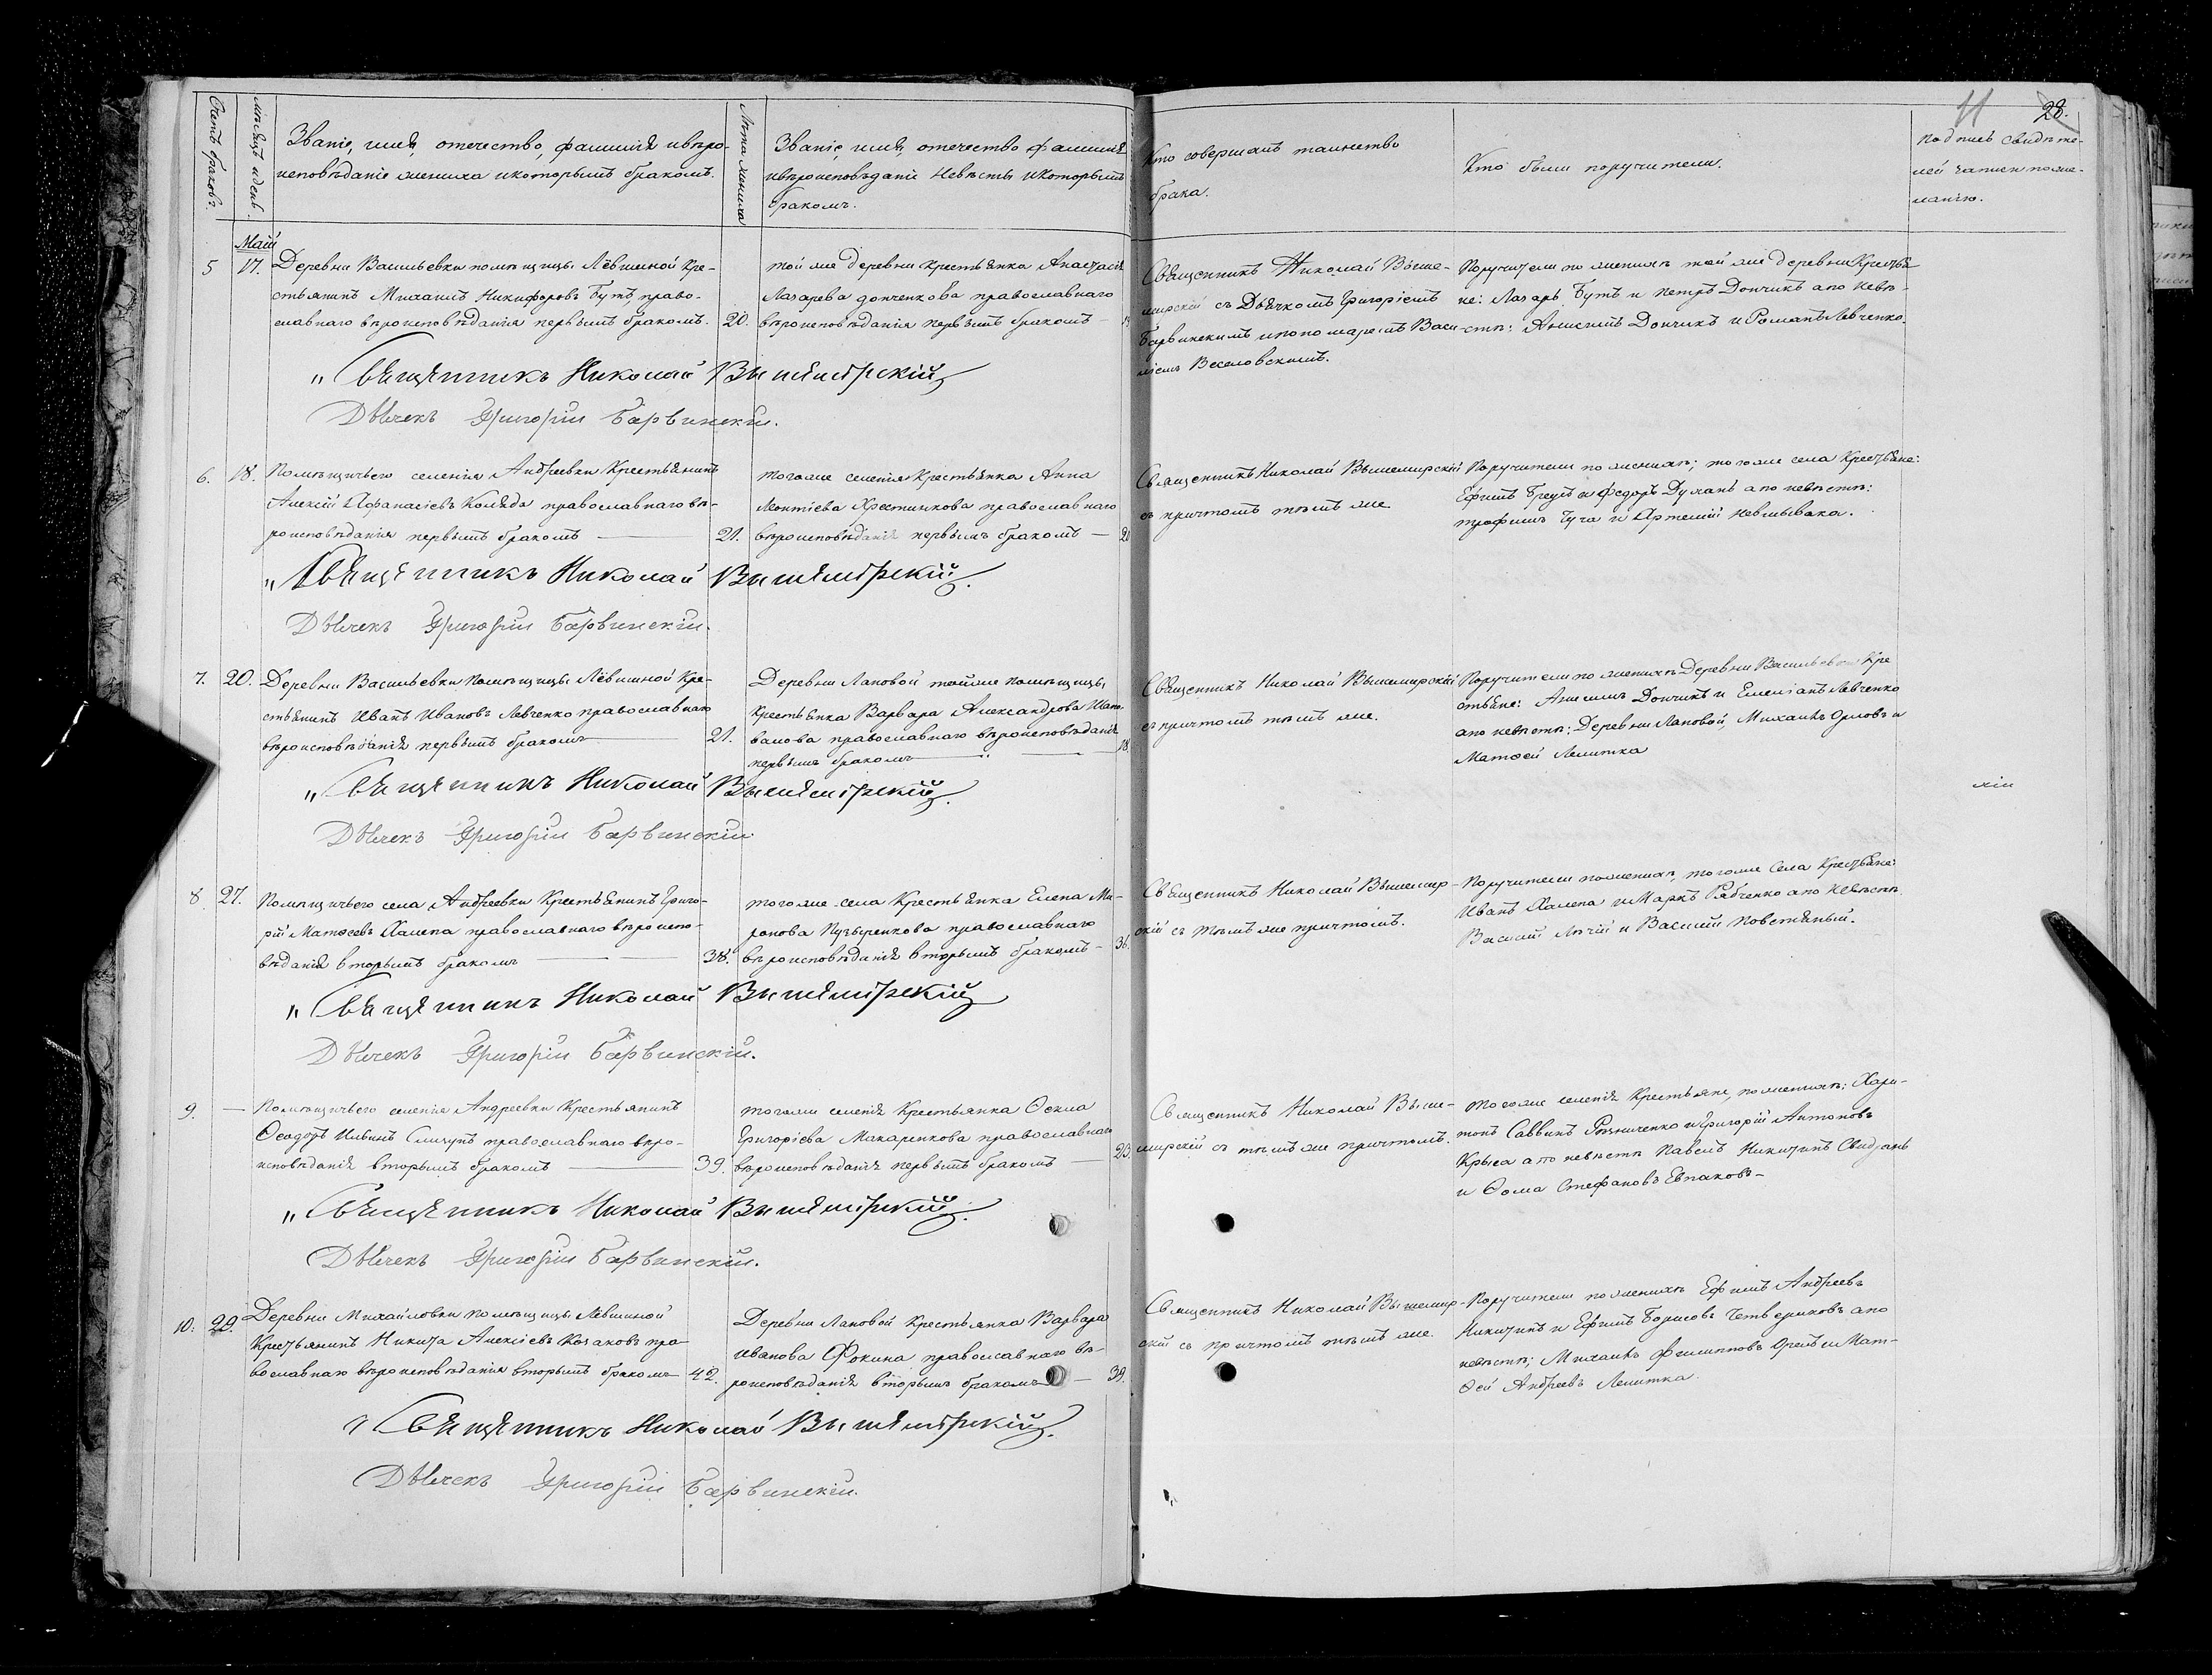 11 28.
Счетъ браковъ.
Мѣсяцъ и день.
Званіе, имя, отечество, фамилія и вѣро-
исповѣданіе жениха и которымъ бракомъ.
Лѣта жениха
Званіе, имя, отечество фамилия
и вѣроисповѣданіе Невѣсты и которымъ
бракомъ.
Кто совершалъ таинство
брака.
Кто были поручители.
Подпись свидѣте-
лей записи по же-
ланію.
Май
5 17. Деревни Васильевки помѣщицы Лёвшиной Кре-
стьянинъ Михаилъ Никифоровъ Бутъ право-
славнаго вѣроисповѣданія первымъ бракомъ. 20.
той же деревни крестьянка Анастасія
Лазарева донченкова православнаго
вѣроисповѣданія первымъ бракомъ —
Священникъ Николай Выше-
мирскій съ Дьячкомъ Григоріемъ
Барвинскимъ и пономаремъ Васи-
ліемъ Веселовскимъ.
Поручители по женихѣ той же деревни Крестья
не: Лазарь Бутъ и Петръ Дончикъ а по невѣ-
стѣ: Анисимъ Дончикъ и Романъ Левченко.
„Священникъ Николай Вышемірскій
Дьячекъ Григорій Барвинскій.
6. 18. Помѣщичьего селенія Андреевки Крестьянинъ
Алексій Афанасіевъ Коляда православнаго вѣ-
роисповѣданія первымъ бракомъ — 21.
тогоже селенія Крестьянка Анна
Леонтіева Хрестикова православнаго
вѣроисповѣданія первымъ бракомъ — 20
Священникъ Николай Вышемирскій
съ причтомъ тѣмъ же
Поручители по женихѣ; тогоже села Крестьяне:
Ефимъ Греуъ и Федоръ Духанъ а по невѣстѣ:
трофимъ Чуча и Артемій Невмывака.
„Священникъ Николай Вышемірскій.
Дьячекъ Григорій Барвинскій.
7. 20. Деревни Васильевки помѣщицы Лёвшиной Кре-
стьянинъ Иванъ Ивановъ Левченко православнаго
вѣроисповѣданія первымъ бракомъ — 21.
Деревни Лаповой тойже помѣщицы
Крестьянка Варвара Александрова Шапо-
валова православнаго вѣроисповѣданія
первымъ бракомъ — 18.
Священникъ Николай Вышемирскій
съ причтомъ тѣмъ же.
Поручители по женихѣ Деревни Васильевки Кре
стьяне: Анисимъ Дончикъ и Емеліанъ Левченко
а по невѣстѣ: Деревни Лаповой, Михаилъ Орловъ и
Матфей Лелитка
„Священникъ Николай Вышемірскій.
Дьячекъ Григорій Барвинскій
8. 27. Помѣщичьего села Андреевки Крестьянинъ Григо-
рій Матфеевъ Халепа православнаго вѣроиспо-
вѣданія вторымъ бракомъ — 38.
тогоже села Крестьянка Елена Ми-
ронова Пузыренкова православнаго
вѣроисповѣданія вторымъ бракомъ — 36.
Священникъ Николай Вышемир-
скій съ тѣмъ же причтомъ.
Поручители по женихѣ, тогоже Села Крестьяне:
Иванъ Халепа и Маркъ Рябченко а по невѣстѣ
Василій Лѣчій и Василій Повстяный.
„Священникъ Николай Вышемірскій
Дьячекъ Григорій Барвинскій.
9. — Помѣщичьего селенія Андреевки Крестьянинъ
Ѳеодоръ Ильинъ Сличупъ православнаго вѣро-
исповѣданія вторымъ бракомъ — 39.
тогоже селенія Крестьянка Ѳекла
Григоріева Макаренкова православнаго
вѣроисповѣданія первымъ бракомъ — 23.
Священникъ Николай Выше-
мирскій съ тѣмъ же причтомъ.
тогоже селенія Крестьяне, по женихѣ; Хари-
тонъ Саввинъ Рѣзниченко и Григорій Антоновъ
Крыса а по невѣстѣ Павелъ Никитинъ Свидранъ
и Ѳома Стефановъ Евпаковъ —
„Священникъ Николай Вышемірскій.
Дьячекъ Григорій Барвинскій.
10. 29. Деревни Михайловки помѣщицы Лёвшиной
Крестьянинъ Никита Алексіевъ Козаковъ пра
вославнаго вѣроисповѣданія вторымъ бракомъ 42.
Деревни Лаповой Крестьянка Варвара
Иванова Фокина православнаго вѣ-
роисповѣданія вторымъ бракомъ — 39.
Священникъ Николай Вышемир-
скій съ причтомъ тѣмъ же.
Поручители по женихѣ Ефимъ Андреевъ
Никитинъ и Ефимъ Борисовъ Четвериковъ а по
невѣстѣ; Михаилъ Филипповъ Орелъ и Мат-
ѳей Андреевъ Лелитка.
„Священникъ Николай Вышемірскій.
Дьячекъ Григорій Барвинскій.